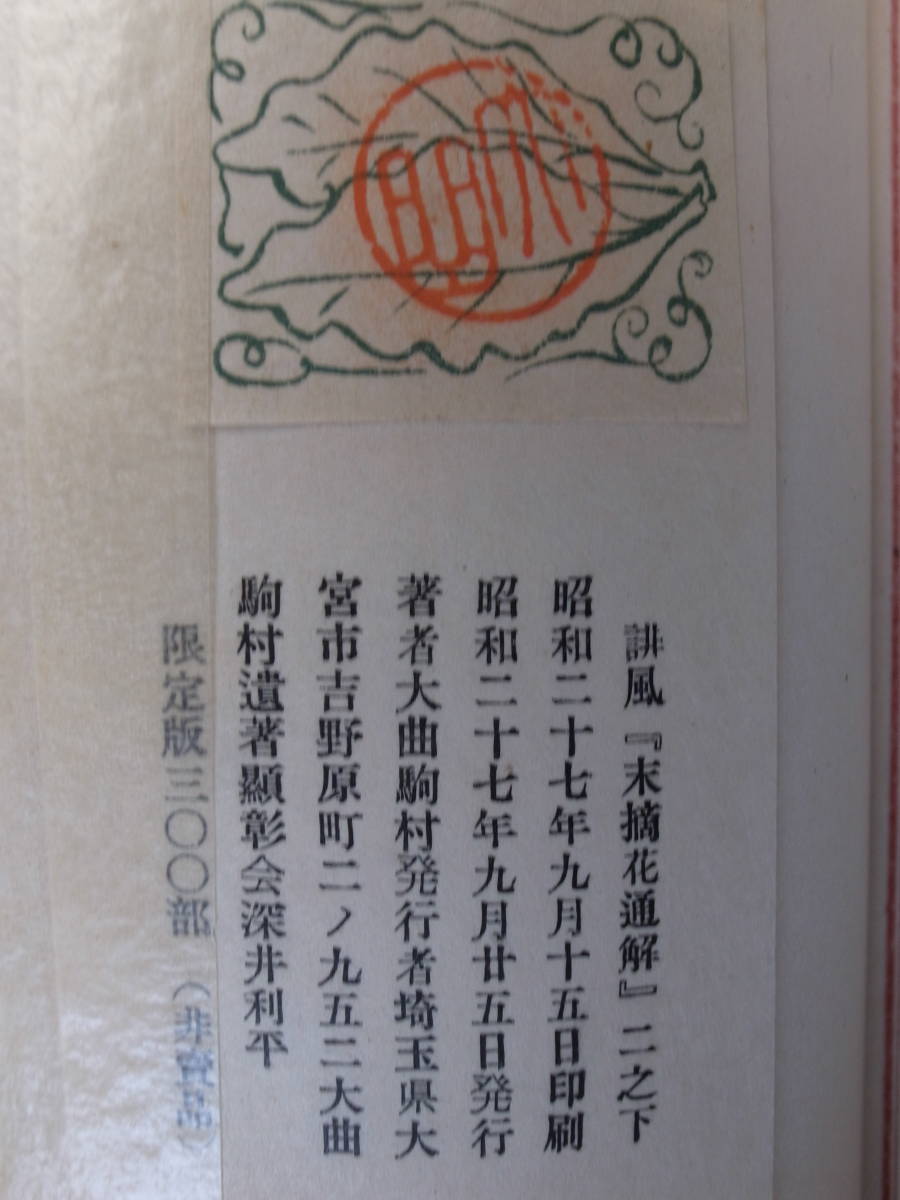 誹風『末摘花通解』二之下
昭和二十七年九月十五日印刷
昭和二十七年九月廿五日発行
著者大曲駒村発行者埼玉県大
宮市吉野原町二ノ九五二大曲
駒村遺著顯彰会深井利平
限定版三〇〇部（非賣品）